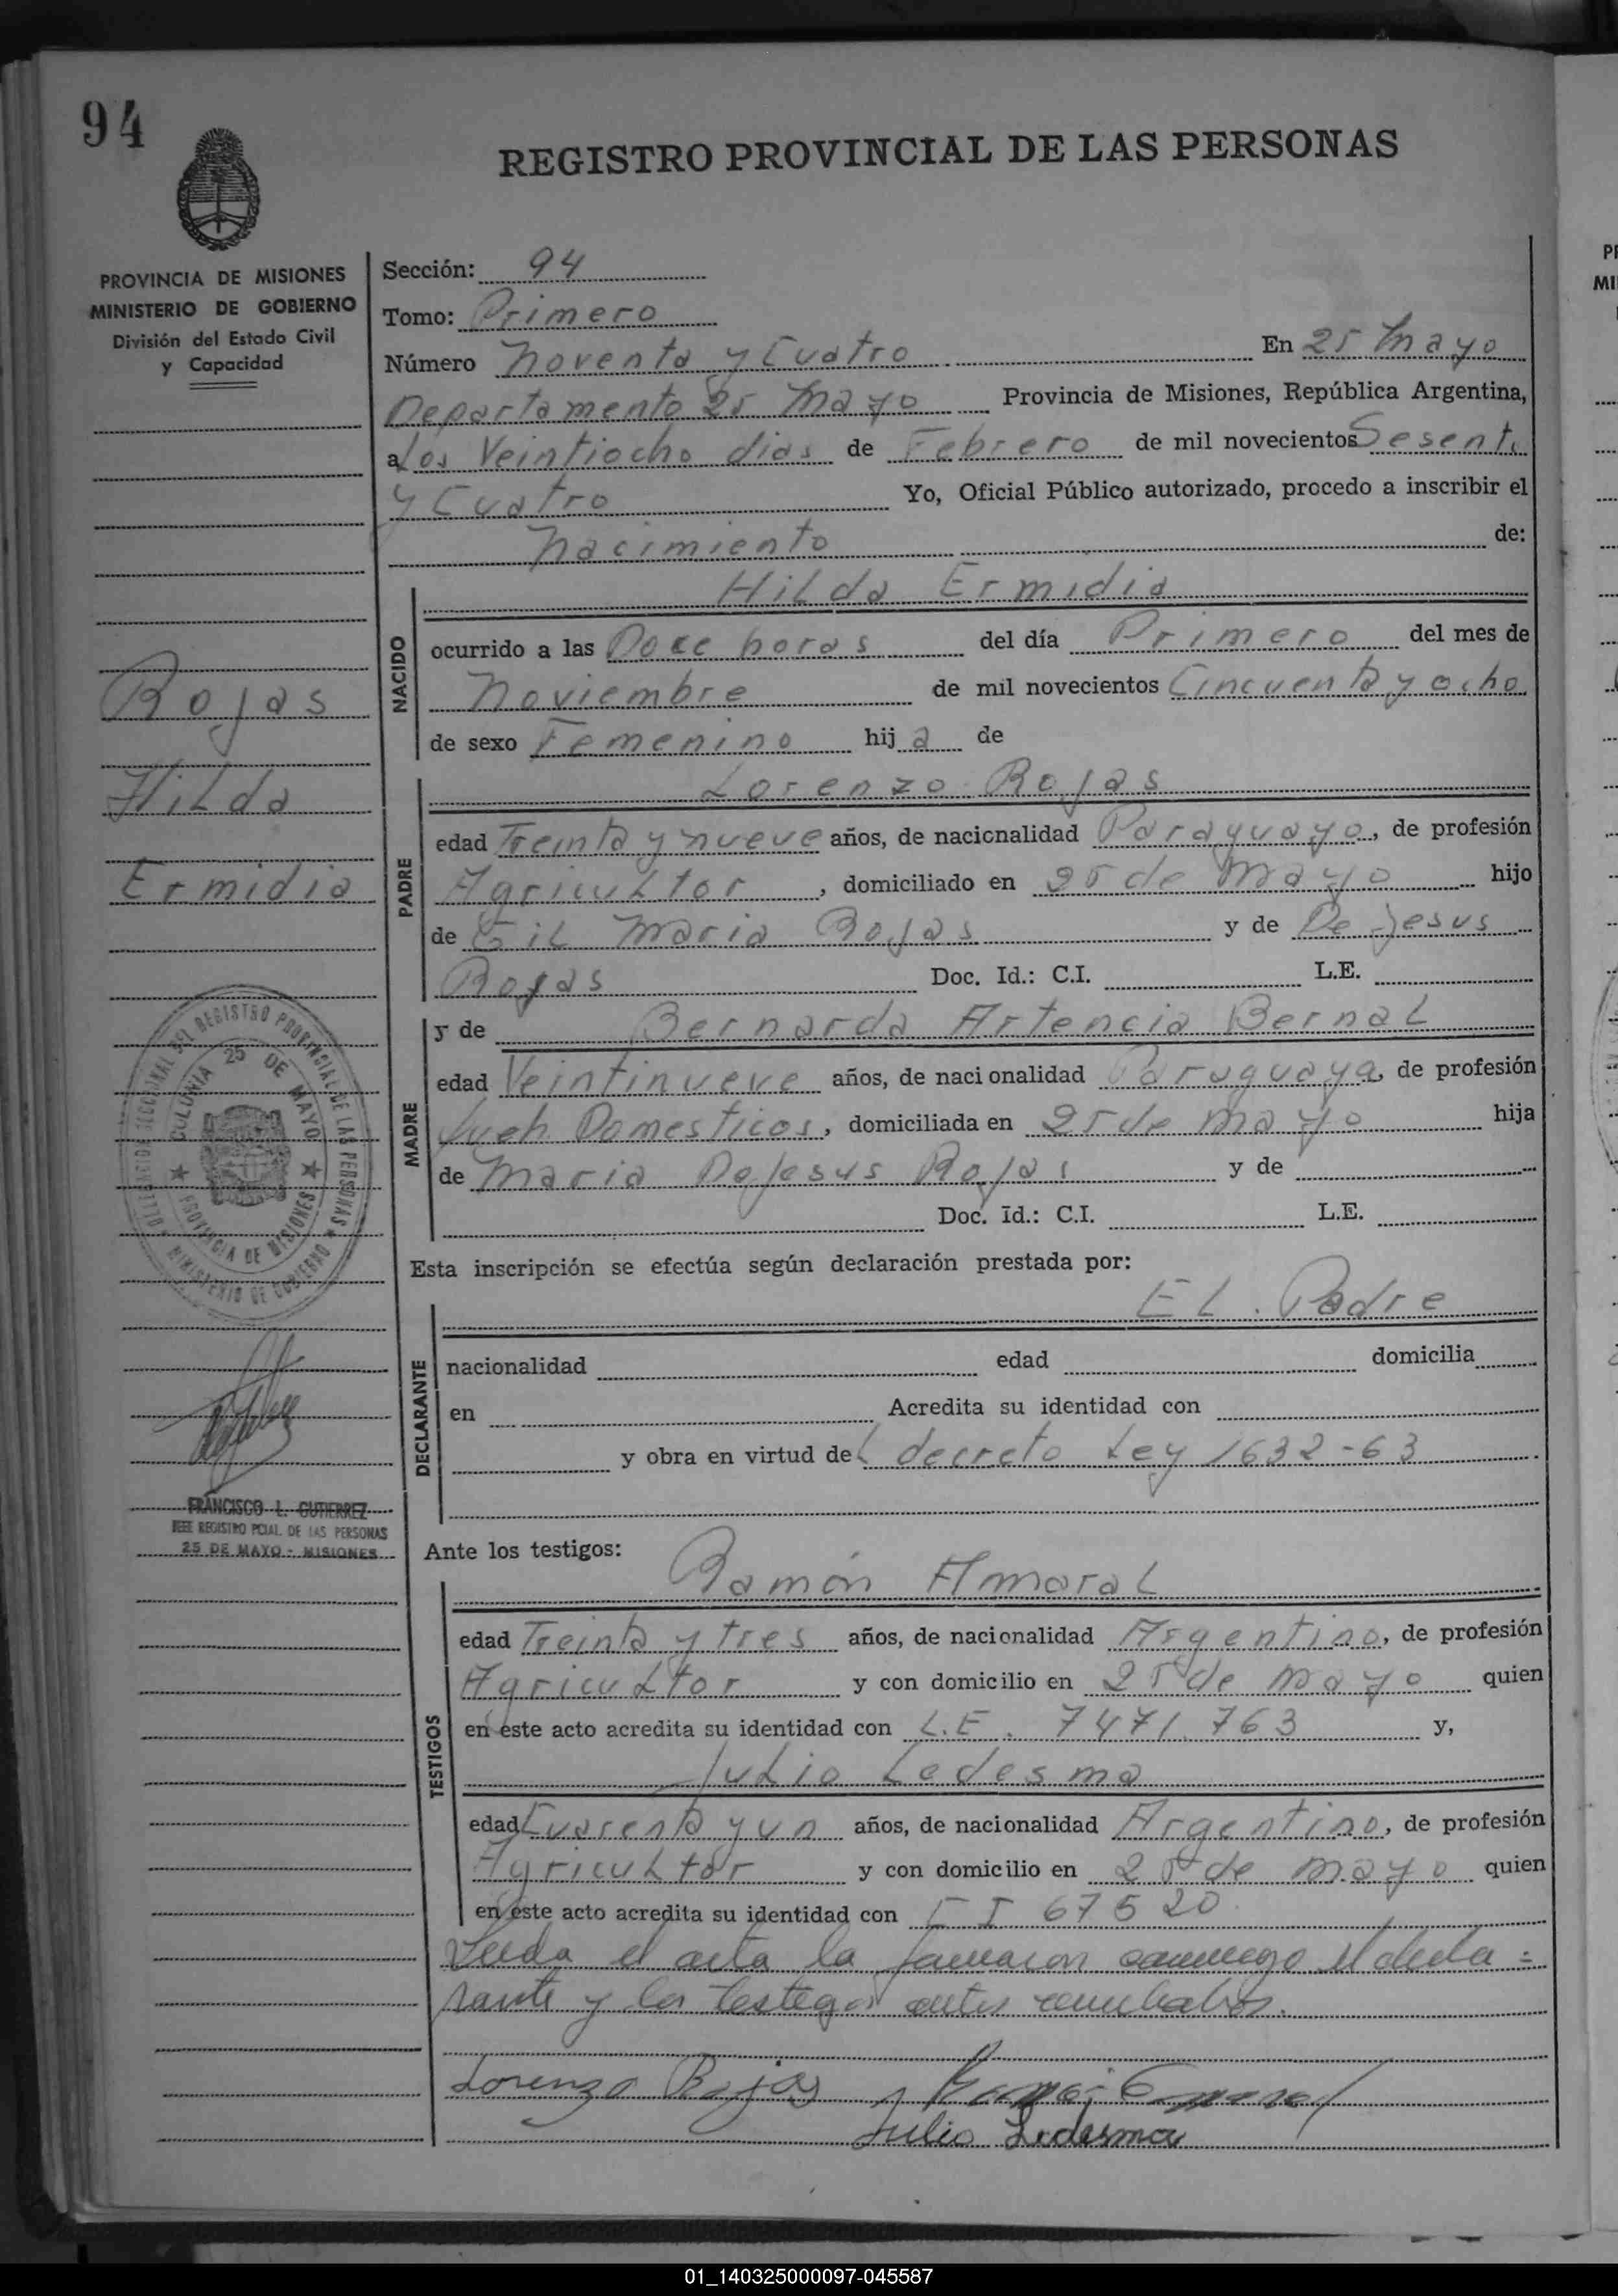 94
REGISTRO PROVINCIAL DE LAS PERSONAS
PROVINCIA DE MISIONES
MINISTERIO DE GOBIERNO
División del Estado Civil
y Capacidad
Sección: 94
Tomo: Primero
Número Noventa y Cuatro En 25 Mayo
Departamento 25 Mayo Provincia de Misiones, República Argentina,
a Los Veintiocho dias de Febrero de mil novecientos Sesenta
y Cuatro Yo, Oficial Público autorizado, procedo a inscribir el
Nacimiento de:
NACIDO
Hilda Ermidia
ocurrido a las Doce horas del día Primero del mes de
Noviembre de mil novecientos Cincuenta y ocho
de sexo Femenino hija de
Rojas
Hilda
Ermidia
PADRE
Lorenzo Rojas
edad Treinta y nueve años, de nacionalidad Paraguayo, de profesión
Agricultor, domiciliado en 25 de Mayo hijo
de Gil Maria Rojas y de De Jesus
Rojas Doc. Id.: C.I. L.E.
MADRE
y de Bernarda Artencia Bernal
edad Veintinueve años, de nacionalidad Paraguaya, de profesión
Domesticos, domiciliada en 25 de Mayo hija
de Maria DeJesus Rojas y de
Doc. Id.: C.I. L.E.
COLONIA 25 DE MAYO
PROVINCIA DE MISIONES
SECCIONAL DEL REGISTRO PROVINCIAL DE LAS PERSONAS
MINISTERIO DE GOBIERNO
Esta inscripción se efectúa según declaración prestada por:
EL Padre
DECLARANTE
nacionalidad edad domicilia
en Acredita su identidad con
y obra en virtud del decreto Ley 1632-63
FRANCISCO L. GUTIERREZ
JEFE REGISTRO PCIAL DE LAS PERSONAS
25 DE MAYO - MISIONES
Ante los testigos:
TESTIGOS
Ramón Amaral
edad Treinta y tres años, de nacionalidad Argentino, de profesión
Agricultor y con domicilio en 25 de Mayo quien
en este acto acredita su identidad con L.E. 7471.763 y,
Julio Ledesma
edad Cuarenta y un años, de nacionalidad Argentino, de profesión
Agricultor y con domicilio en 25 de Mayo quien
en este acto acredita su identidad con C I 67520
Leida el acta la conmigo el decla=
rante y los testigos
Lorenzo Rojas
Julio Ledesma
01_140325000097-045587